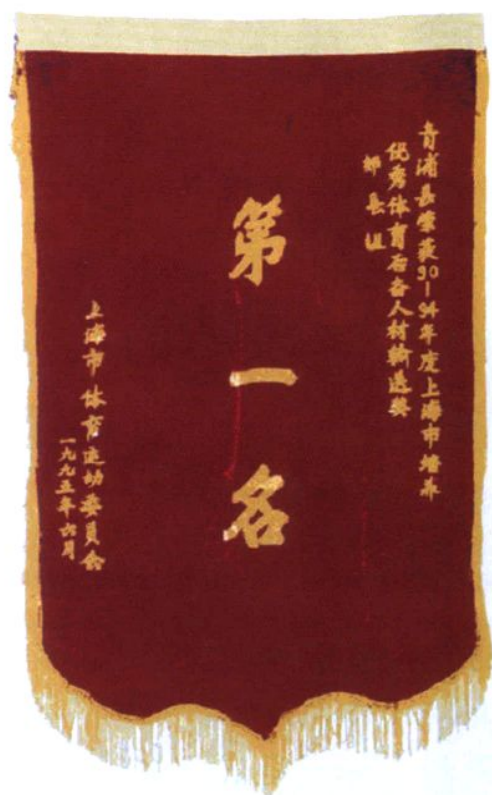 青浦县荣获90—94年度上海市培养
优秀体育后备人材输送奖
郊县组
第一名
上海市体育运动委员会
一九九五年六月